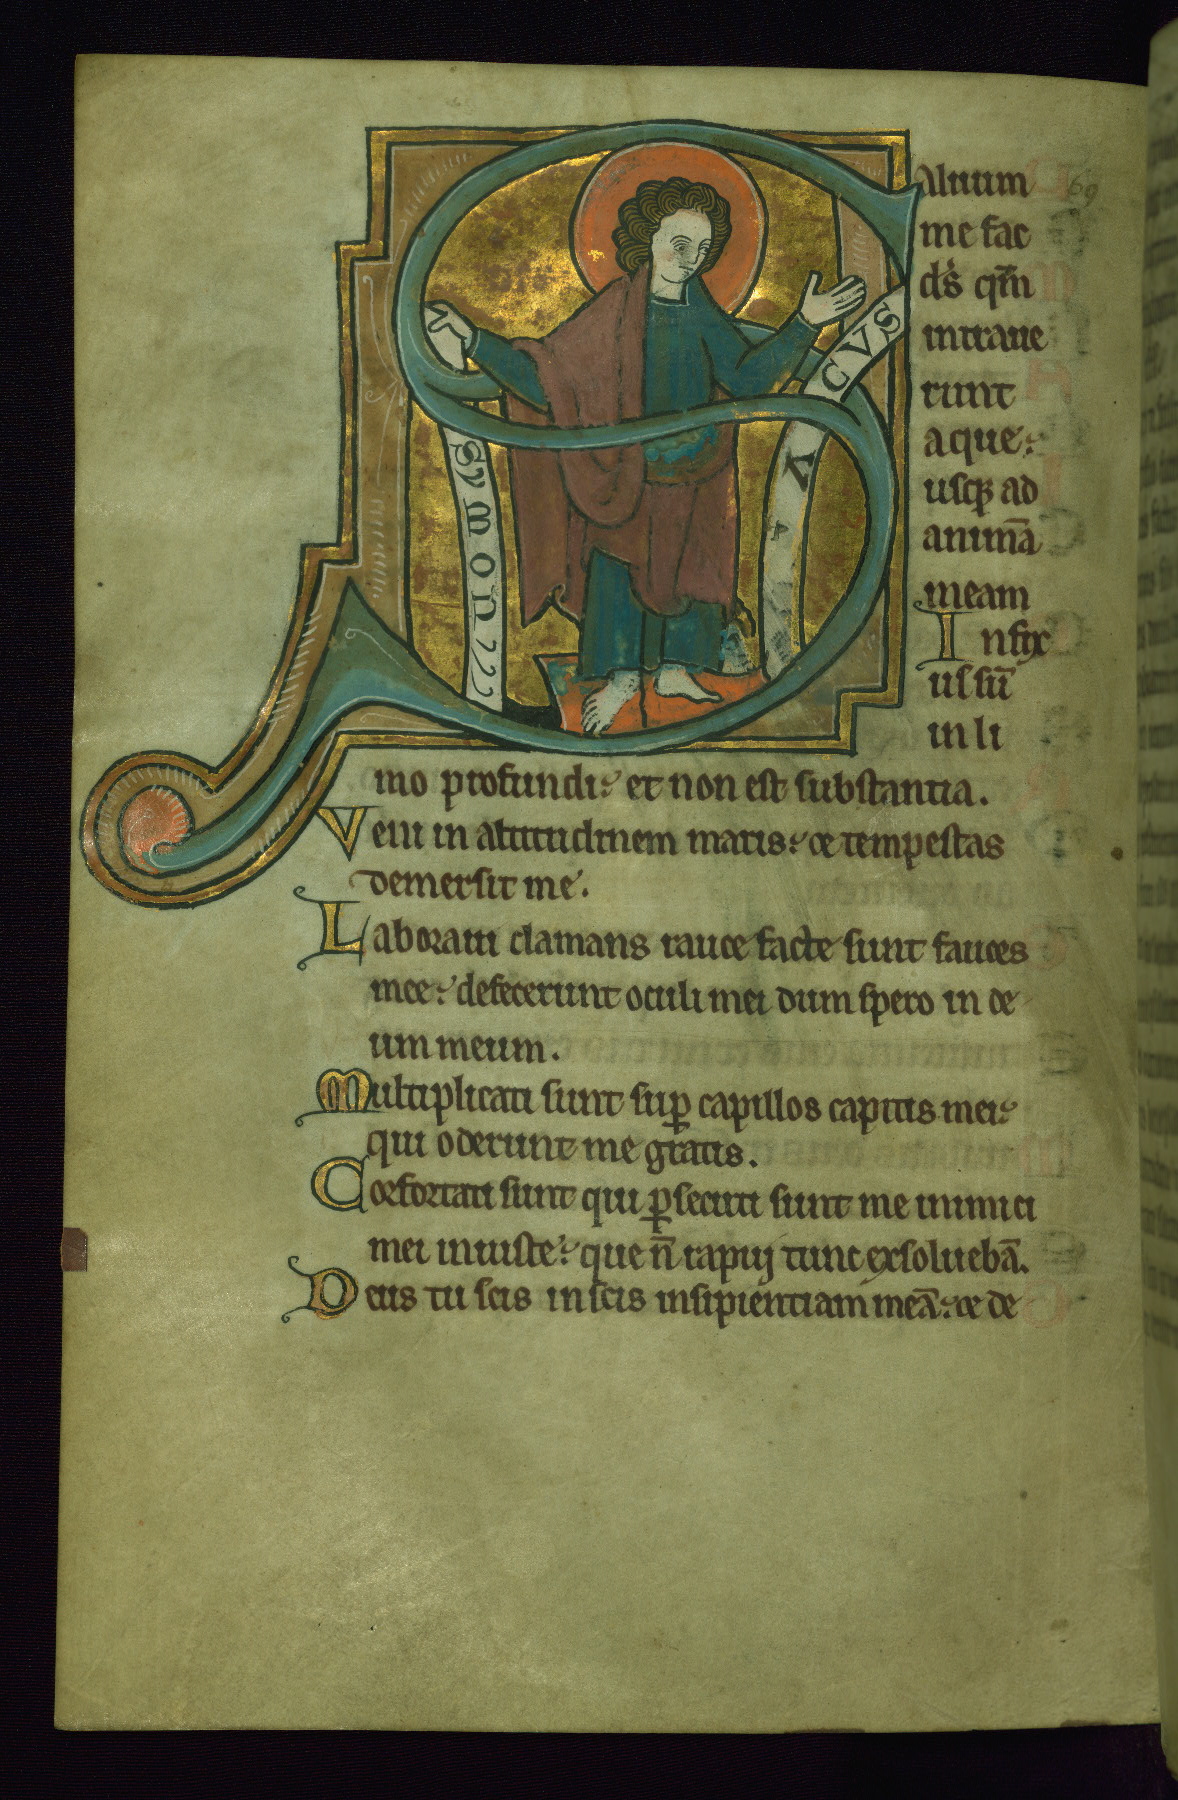 Saluum
me fac
ds̉ qm̅
intraue
runt
aque.
usqꝫ ad
animā
meam
Infix
us sū
in li
mo profundi. et non est substantia.
Veni in altitudinem maris. et tempestas
demersit me.
Laboraui clamans rauce facte sunt fauces
mee. defecerunt oculi mei dum spero in de
um meum.
Multiplicati sunt sup̱ capillos capitis mei.
qui oderunt me gratis.
Confortati sunt qui ꝑsecuti sunt me inimici
mei iniuste. que n̅ rapuj tunc exsoluebā.
Deus tu scis in scis insipientiam meā. et de
SYMON
ACVS
69